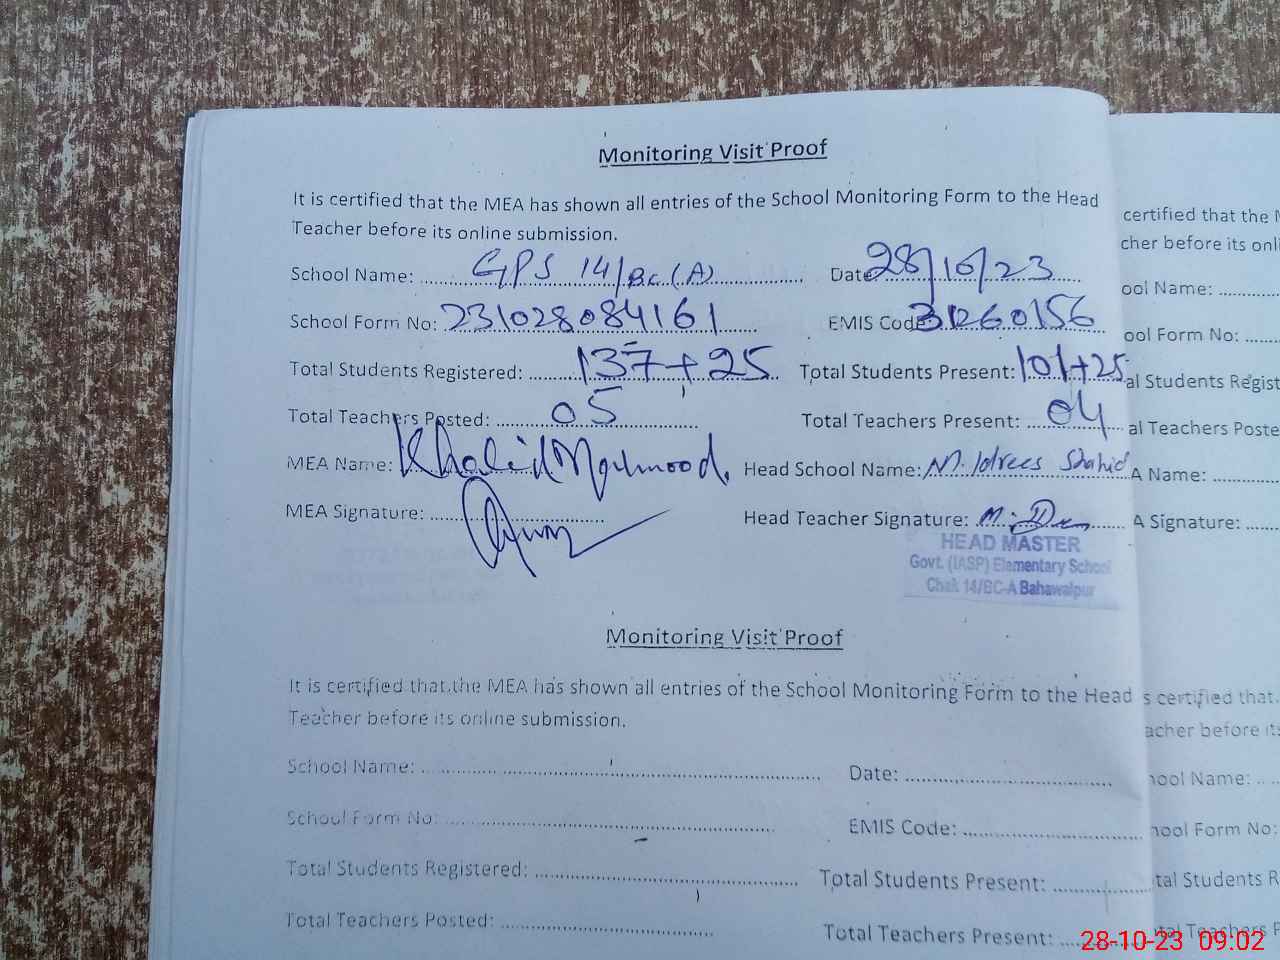 Monitoring Visit Proof
It is certified that the MEA has shown all entries of the School Monitoring Form to the Head
Teacher before its online submission.
School Name: GPS 14/BC(A) Date 28/10/23
School Form No: 231028084161 EMIS Code 31260156
Total Students Registered: 137+25 Total Students Present: 101+25
Total Teachers Posted: 05 Total Teachers Present: 04
MEA Name: Khalid Mahmood Head School Name: M. Idrees Shahid
MEA Signature: Head Teacher Signature:
HEAD MASTER
Govt. (IASP) Elementary School
Chak 14/BC-A Bahawalpur
Monitoring Visit Proof
It is certified that the MEA has shown all entries of the School Monitoring Form to the Head
Teacher before its online submission.
School Name: Date:
School Form No: EMIS Code:
Total Students Registered: Total Students Present:
Total Teachers Posted: Total Teachers Present:
certified that the
cher before its onli
ool Name:
ool Form No:
al Students Regist
al Teachers Poste
A Name:
A Signature:
s certified that
acher before its
hool Name:
hool Form No:
tal Students R
tal Teachers P
28-10-23 09:02